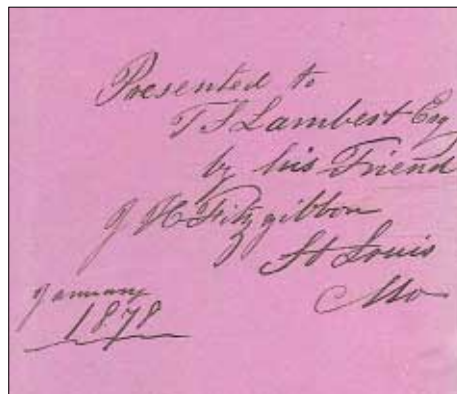 Presented to
T S Lambert Esq
by his Friend
J H Fitzgibbon
St Louis
Mo
January
1878